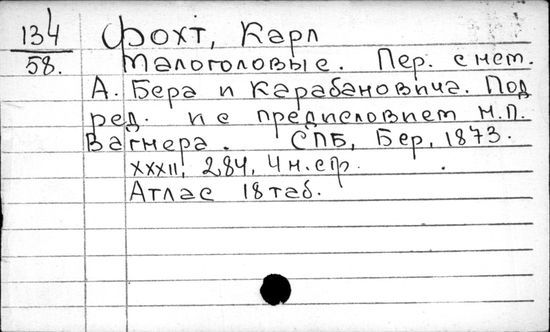 134
58.
Фохт, Карл
Малоголовые. Пер. с нем.
А. Бера и Карабановича. Под
ред. и с предисловием Н.П.
Вагнера. СПБ, Бер, 1873.
XXXII, 284, 4 н. стр.
Атлас 18 таб.